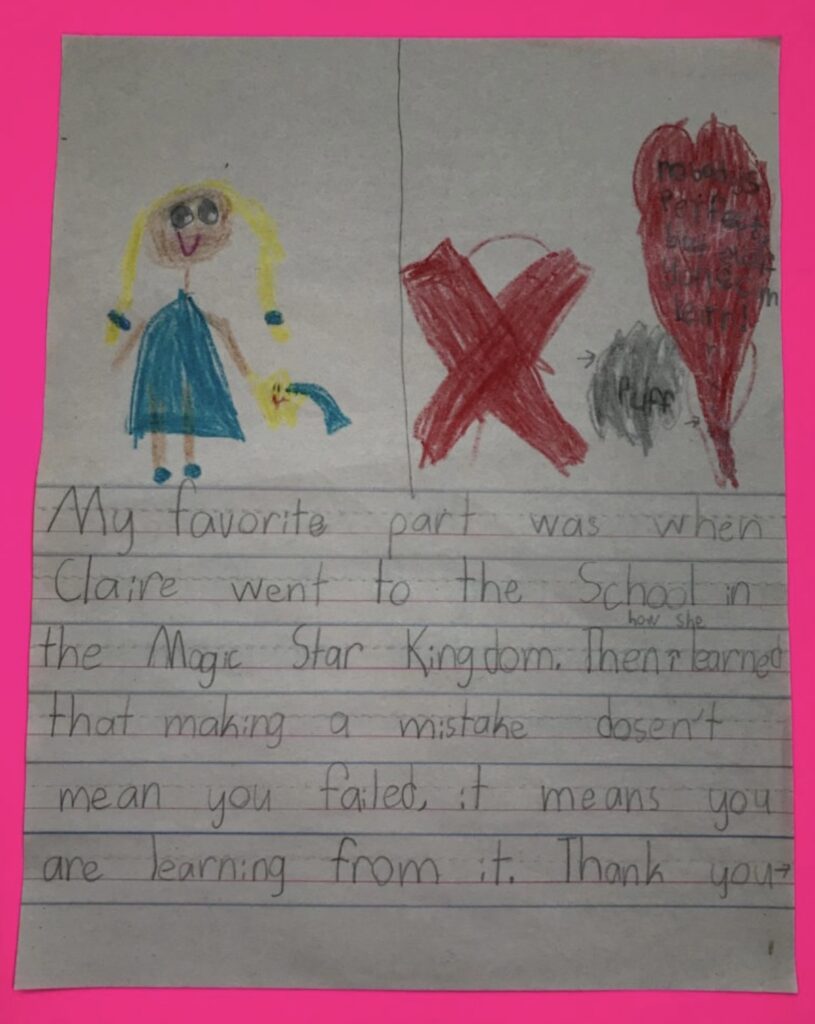 nobody is
Perfect
but
learn!
Puff
My favorite part was when
Claire went to the School in
how she
the Magic Star Kingdom. Then↑learned
that making a mistake dosen't
mean you failed, it means you
are learning from it. Thank you→
1